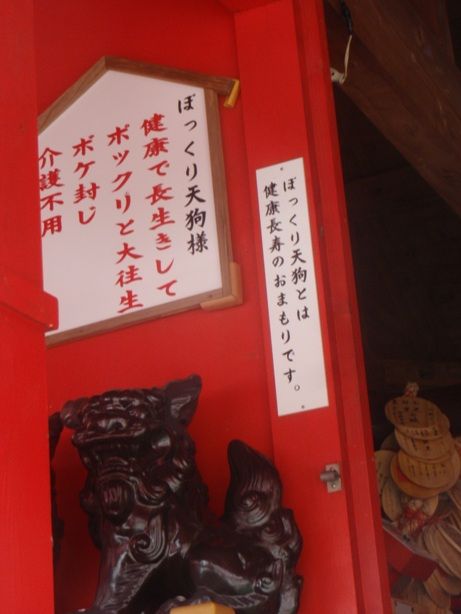 ぽっくり天狗様
健康で長生きして
ポックリと大往生
ボケ封じ
介護不用
ぽっくり天狗とは
健康長寿のおまもりです。